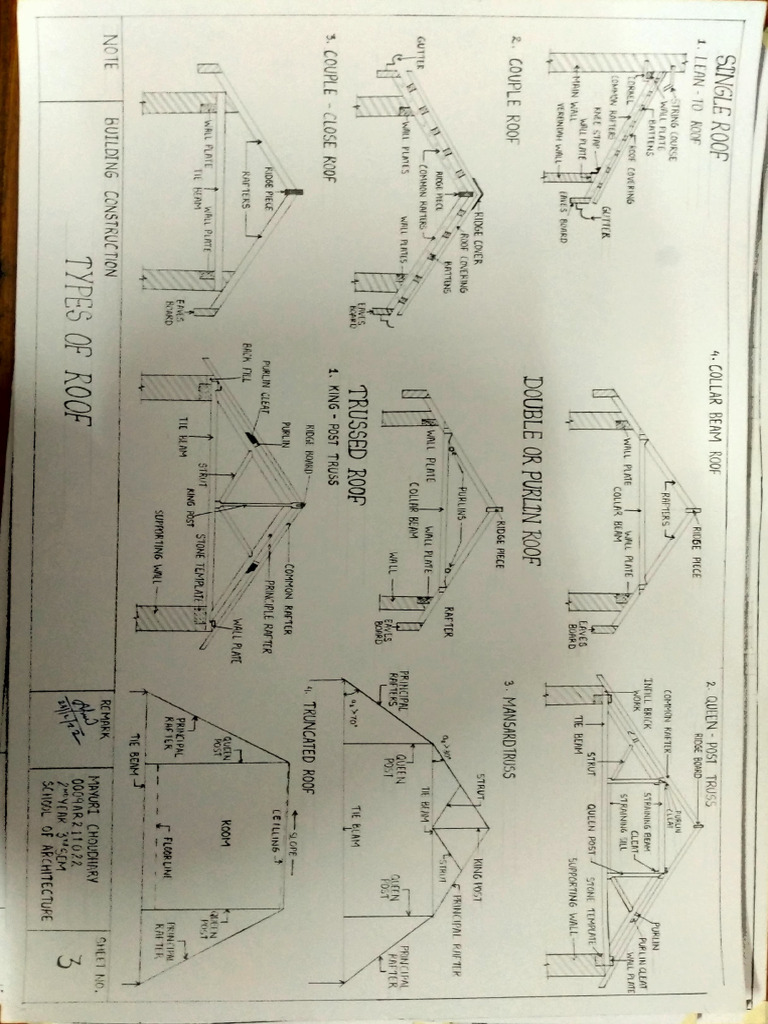 SINGLE ROOF
1. LEAN-TO ROOF
STRING COURSE
WALL PLATE
BATTENS
ROOF COVERING
CORBEL
COMMON RAFTERS
KNEE STRAP
WALL PLATE
MAIN WALL
VERENDAH WALL
GUTTER
EAVES BOARD
2. COUPLE ROOF
GUTTER
RIDGE COVER
ROOF COVERING
BATTENS
RIDGE PIECE
COMMON RAFTERS
WALL PLATES
WALL PLATES
EAVES
BOARD
3. COUPLE - CLOSE ROOF
RIDGE PIECE
RAFTERS
WALL PLATE
WALL PLATE
TIE BEAM
EAVES
BOARD
4. COLLAR BEAM ROOF
RIDGE PIECE
RAFTERS
WALL PLATE
WALL PLATE
COLLAR BEAM
EAVES
BOARD
DOUBLE OR PURLIN ROOF
RIDGE PIECE
PURLINS
RAFTER
WALL PLATE
WALL PLATE
COLLAR BEAM
WALL
EAVES
BOARD
TRUSSED ROOF
1. KING - POST TRUSS
RIDGE BOARD
PURLIN
PURLIN CLEAT
BACK FILL
COMMON RAFTER
PRINCIPLE RAFTER
STRUT
KING POST
TIE BEAM
STONE TEMPLATE
SUPPORTING WALL
WALL PLATE
2. QUEEN - POST TRUSS
RIDGE BOARD
PURLIN
CLEAT
COMMON RAFTER
INFILL BRICK
WORK
STRAINING BEAM
CLEAT
STRAINING SILL
PURLIN
PURLIN CLEAT
WALL PLATE
STRUT
TIE BEAM
QUEEN POST
STONE TEMPLATE
SUPPORTING WALL
3. MANSARD TRUSS
STRUT
KING POST
PRINCIPAL RAFTER
PRINCIPAL
RAFTERS
TIE BEAM
STRUT
QUEEN
POST
QUEEN
POST
TIE BEAM
PRINCIPAL
RAFTER
4. TRUNCATED ROOF
SLOPE
CEILLING
ROOM
QUEEN
POST
QUEEN
POST
PRINCIPAL
RAFTER
PRINCIPAL
RAFTER
FLOOR LINE
TIE BEAM
NOTE
BUILDING CONSTRUCTION
TYPES OF ROOF
REMARK
MAYURI CHOUDHARY
0009AR211022
2nd YEAR 3rd SEM
SCHOOL OF ARCHITECTURE
SHEET NO.
3